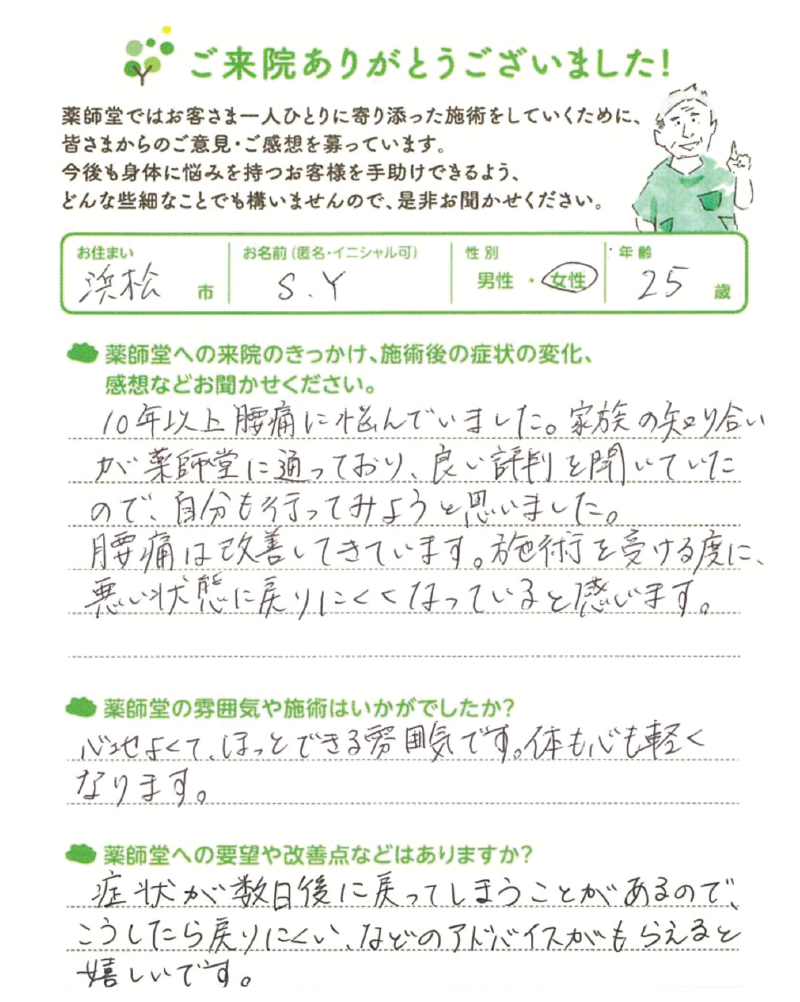 ご来院ありがとうございました!
薬師堂ではお客さま一人ひとりに寄り添った施術をしていくために、
皆さまからのご意見・ご感想を募っています。
今後も身体に悩みを持つお客様を手助けできるよう、
どんな些細なことでも構いませんので、是非お聞かせください。
お住まい お名前(匿名・イニシャル可) 性別 年齢
浜松 市 S.Y 男性・女性 25 歳
薬師堂への来院のきっかけ、施術後の症状の変化、
感想などお聞かせください。
10年以上腰痛に悩んでいました。家族の知り合い
が薬師堂に通っており、良い評判を聞いていた
ので、自分も行ってみようと思いました。
腰痛は改善してきています。施術を受ける度に、
悪い状態に戻りにくくなっていると感じます。
薬師堂の雰囲気や施術はいかがでしたか?
心地よくて、ほっとできる雰囲気です。体も心も軽く
なります。
薬師堂への要望や改善点などはありますか?
症状が数日後に戻ってしまうことがあるので、
こうしたら戻りにくい、などのアドバイスがもらえると
嬉しいです。